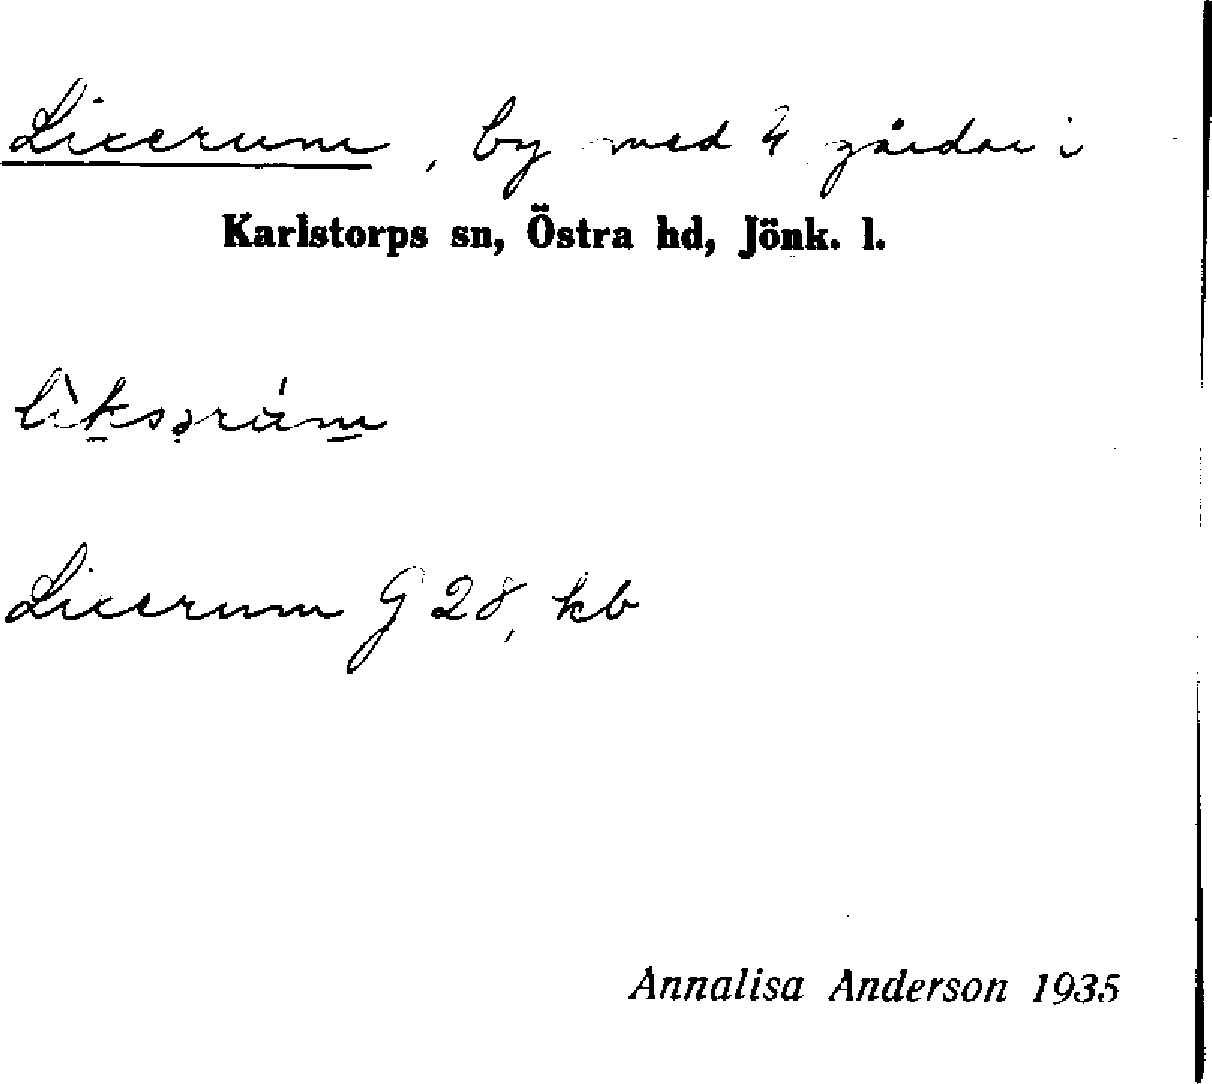 Lixerum, by med 4 gårdar i
Karlstorps sn, Östra hd, Jönk. l.
lìksərúm
Lixerum G 28, kb
Annalisa Anderson 1935